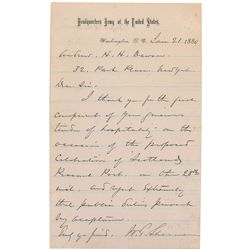 Headquarters Army of the United States,
Washington, D.C. Jan. 21 1880
H. H.
32, Park
Dear Sir.
I thank you for the
compliment of your generous
tender of hospitality on the
occasion of the proposed
Celebration of "Scotland's
Peasant Poet" on the 28th
and regret extremely
that public duties prevent
my acceptance.
W. T. Sherman